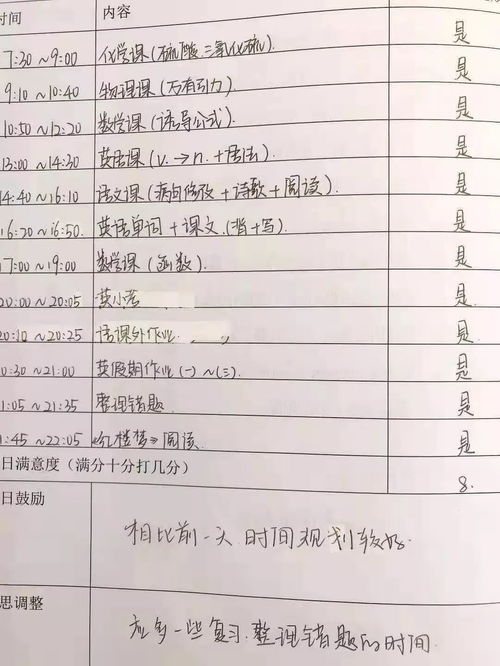 时间 内容
7:30~9:00 化学课(硫酸.二氧化硫) 是
9:10~10:40 物理课(万有引力) 是
10:50~12:20 数学课(诱导公式). 是
13:00~14:30 英语课(v.→n.+语法) 是
14:40~16:10 语文课(病句修改+诗歌+阅读). 是
16:20~16:50. 英语单词+课文.(背+写) 是
17:00~19:00 数学课(函数). 是
20:00~20:05 英小卷 是
20:10~20:25 语课外作业. 是
0:30~21:00 英假期作业(一)~(三). 是
1:05~21:35 整理错题 是
1:45~22:05 《红楼梦》阅读. 是
日满意度(满分十分打几分) 8.
日鼓励
相比前一天时间规划较好.
思调整
应多一些复习.整理错题的时间.